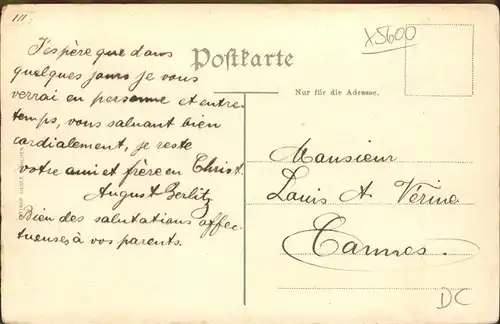 111.
J'espère que dans
quelques jours je vous
verrai en personne et entre-
temps, vous saluant bien
cordialement, je reste
votre ami et frère en Christ.
August Gerlitz
Bien des salutations affec-
tueuses à vos parents.
Postkarte
Nur für die Adresse.
x5600
Monsieur
Louis A Vérine
Cannes.
DC